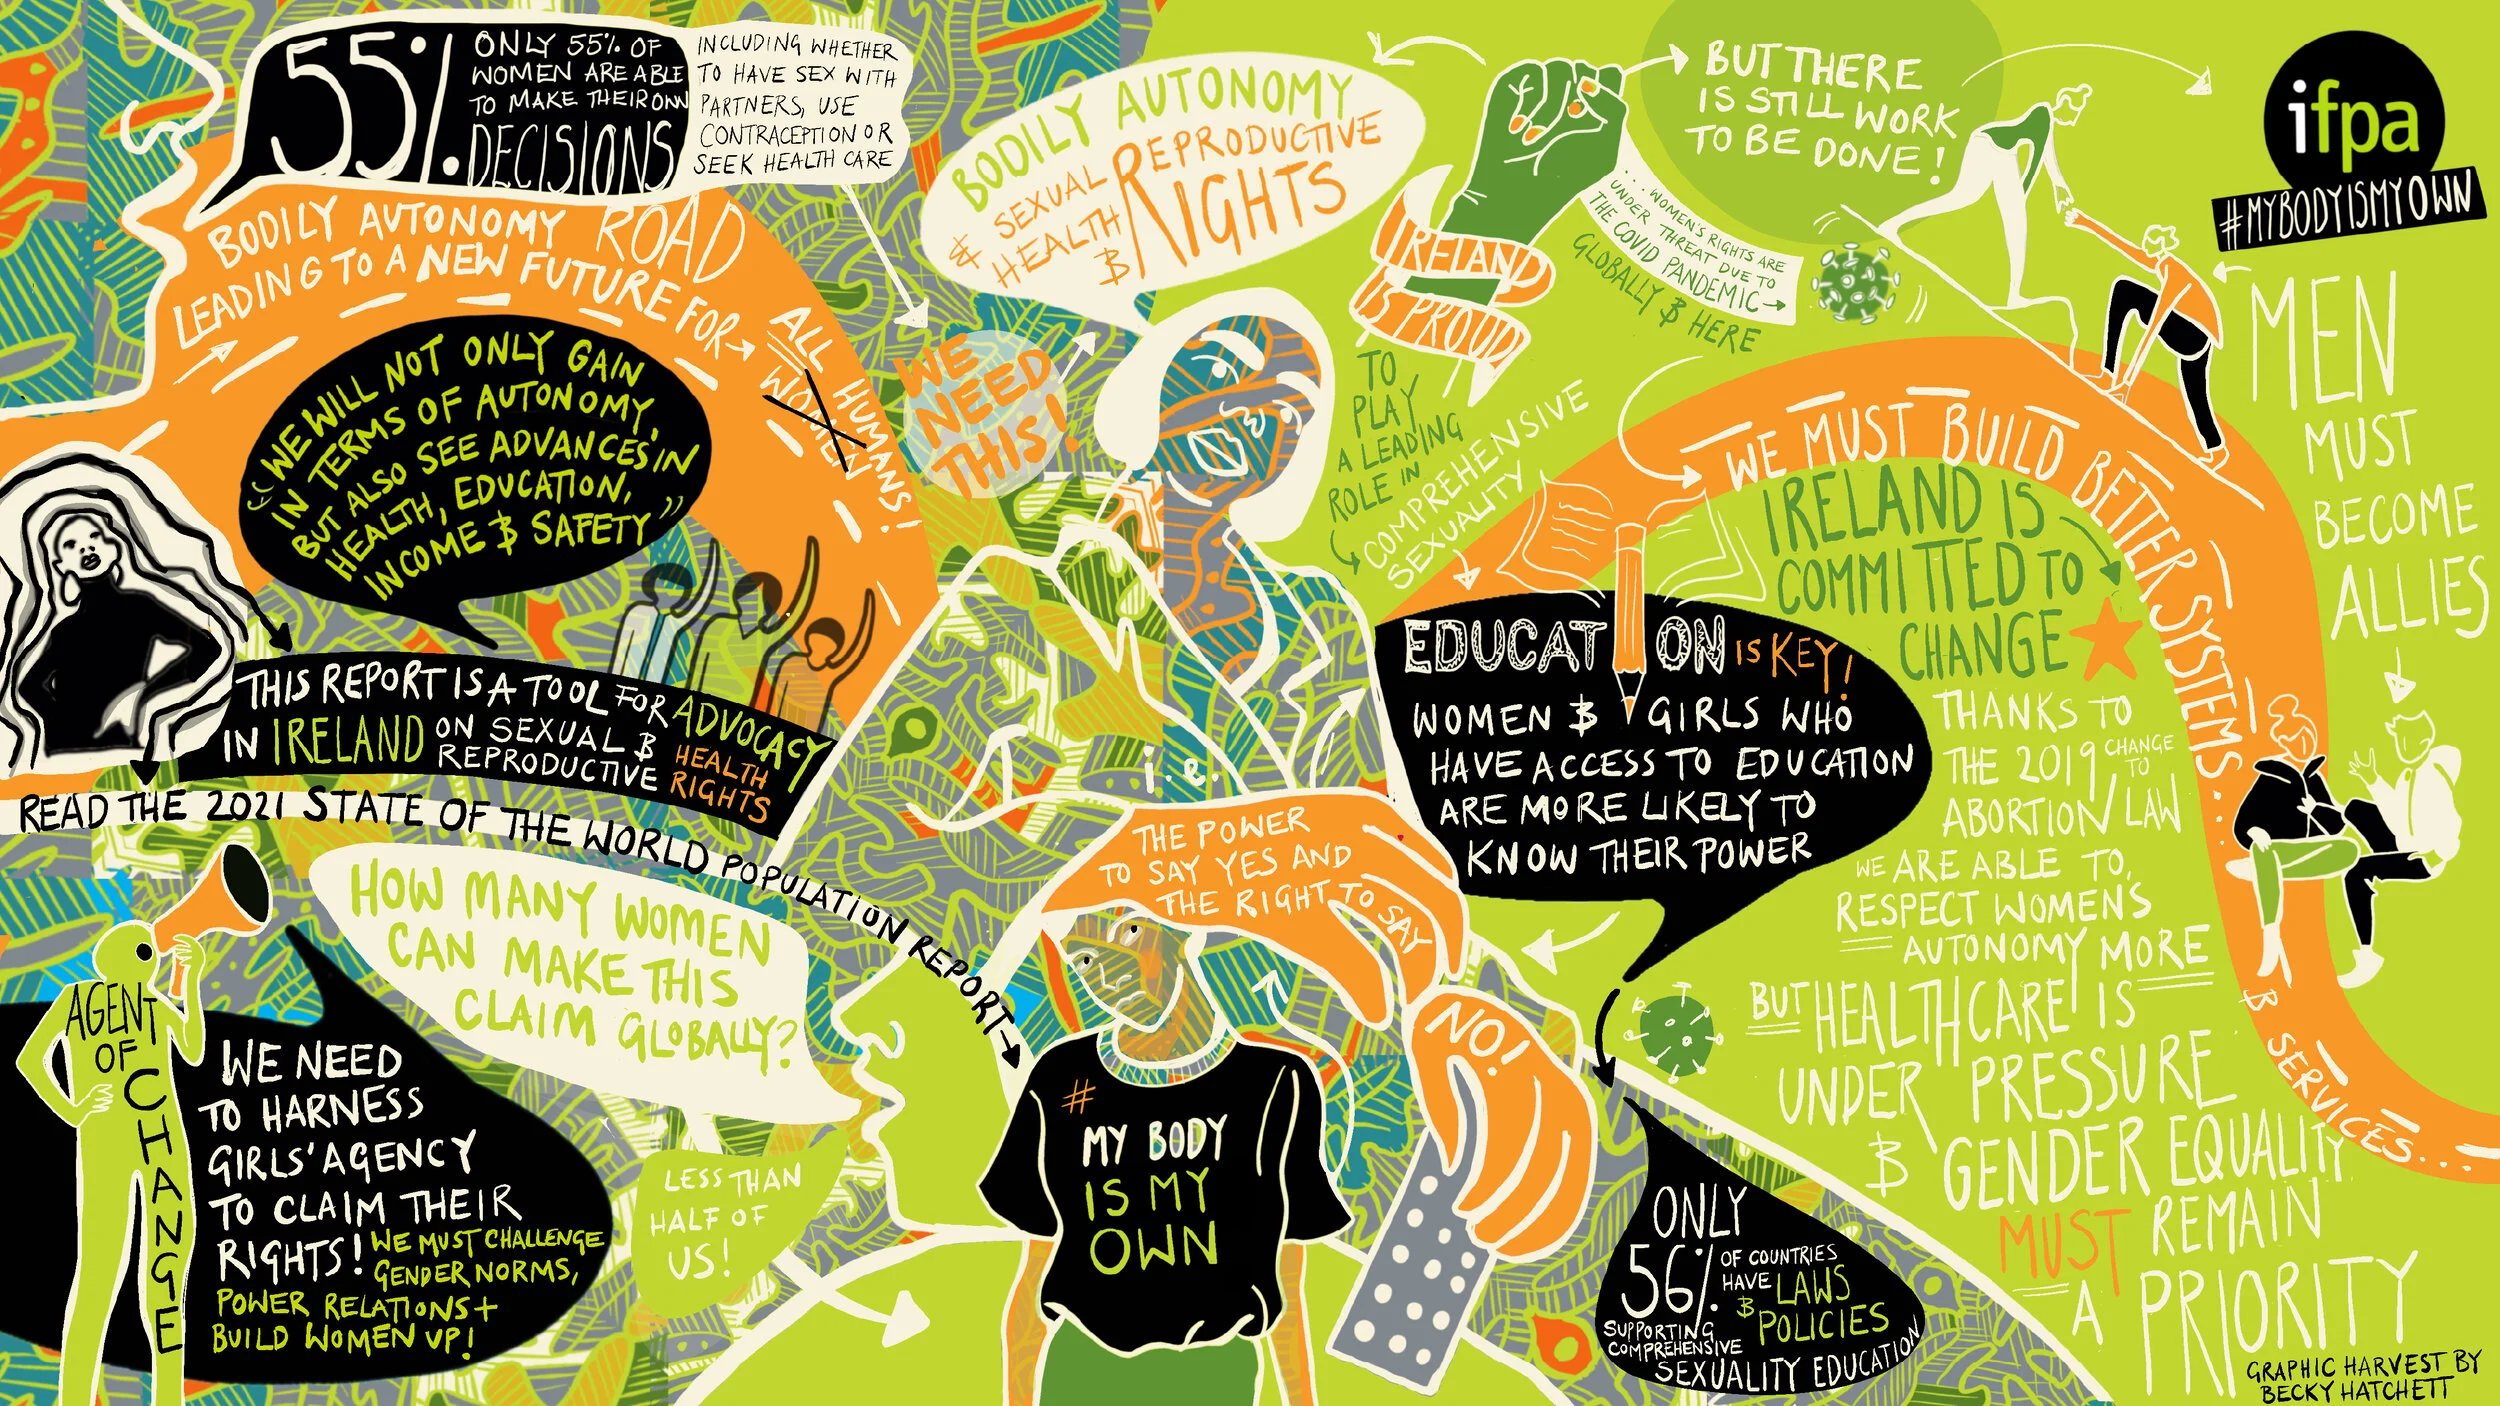 55%
ONLY 55% OF
WOMEN ARE ABLE
TO MAKE THEIR OWN
DECISIONS
INCLUDING WHETHER
TO HAVE SEX WITH
PARTNERS, USE
CONTRACEPTION OR
SEEK HEALTH CARE
BODILY AUTONOMY ROAD
LEADING TO A NEW FUTURE FOR
WOMEN
ALL HUMANS!
"WE WILL NOT ONLY GAIN
IN TERMS OF AUTONOMY,
BUT ALSO SEE ADVANCES IN
HEALTH, EDUCATION,
INCOME & SAFETY"
THIS REPORT IS A TOOL FOR ADVOCACY
IN IRELAND ON SEXUAL &
REPRODUCTIVE
HEALTH
RIGHTS
READ THE 2021 STATE OF THE WORLD POPULATION REPORT
AGENT
OF
CHANGE
WE NEED
TO HARNESS
GIRLS' AGENCY
TO CLAIM THEIR
RIGHTS! WE MUST CHALLENGE
GENDER NORMS,
POWER RELATIONS +
BUILD WOMEN UP!
HOW MANY WOMEN
CAN MAKE THIS
CLAIM GLOBALLY?
LESS THAN
HALF OF
US!
BODILY AUTONOMY
& SEXUAL
HEALTH &
REPRODUCTIVE
RIGHTS
WE
NEED
THIS!
i.e.
THE POWER
TO SAY YES AND
THE RIGHT TO SAY
NO!
#
MY BODY
IS MY
OWN
IRELAND
IS PROUD
TO
PLAY
A LEADING
ROLE IN
COMPREHENSIVE
SEXUALITY
EDUCATION
IS KEY!
WOMEN & GIRLS WHO
HAVE ACCESS TO EDUCATION
ARE MORE LIKELY TO
KNOW THEIR POWER
BUT THERE
IS STILL WORK
TO BE DONE!
...WOMEN'S RIGHTS ARE
UNDER THREAT DUE TO
THE COVID PANDEMIC
GLOBALLY & HERE
ifpa
#MYBODYISMYOWN
MEN
MUST
BECOME
ALLIES
WE MUST BUILD BETTER SYSTEMS...
& SERVICES...
IRELAND IS
COMMITTED TO
CHANGE
THANKS TO
THE 2019 CHANGE TO
ABORTION LAW
WE ARE ABLE TO
RESPECT WOMEN'S
AUTONOMY MORE
BUT HEALTHCARE IS
UNDER PRESSURE
& GENDER EQUALITY
MUST REMAIN
A PRIORITY
ONLY
56% OF COUNTRIES
HAVE LAWS
& POLICIES
SUPPORTING
COMPREHENSIVE
SEXUALITY EDUCATION
GRAPHIC HARVEST BY
BECKY HATCHETT